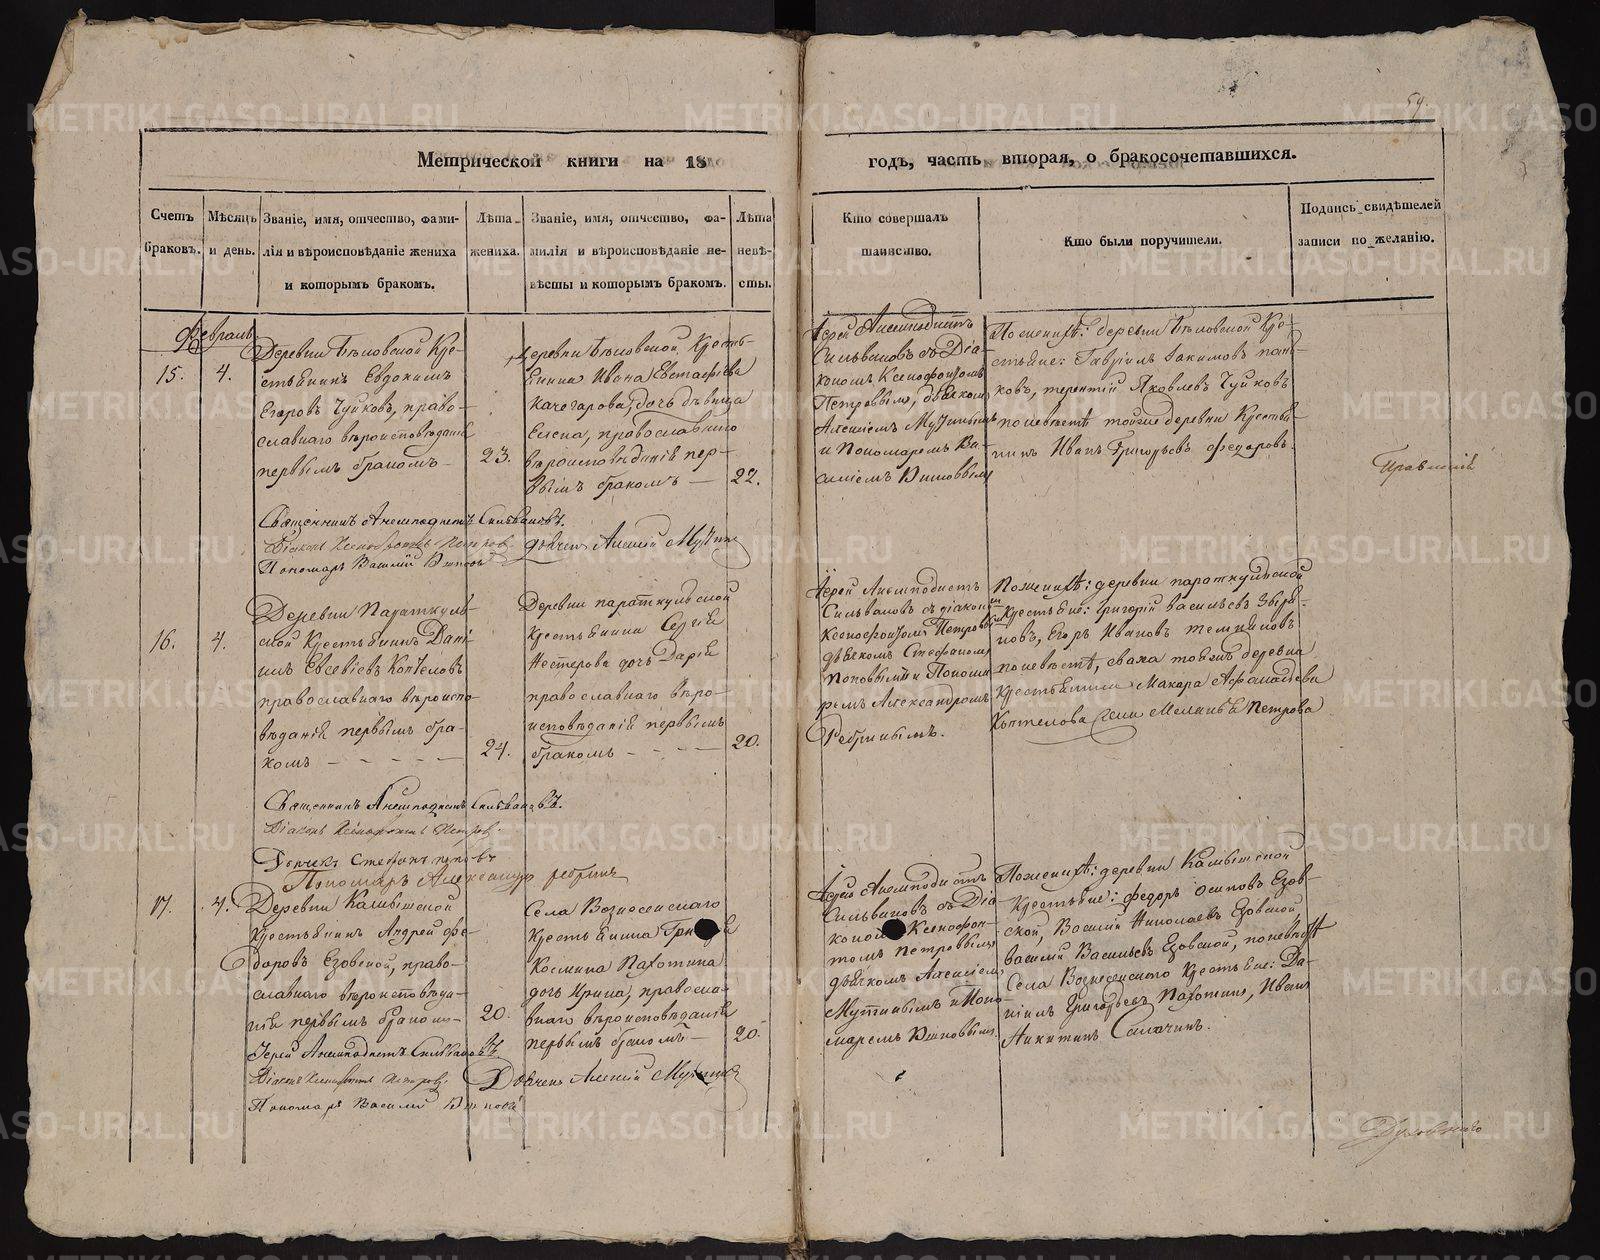 59.
Метрической книги на 18
годъ, часть вторая, о бракосочетавшихся.
Счетъ браковъ.
Мѣсяцъ и день.
Званіе, имя, отчество, фами-
лія и вѣроисповѣданіе жениха
и которымъ бракомъ.
Лѣта
жениха.
Званіе, имя, отчество, фа-
милія и вѣроисповѣданіе не-
вѣсты и которымъ бракомъ.
Лѣта
невѣ-
сты.
Кто совершалъ
таинство.
Кто были поручители.
Подпись свидѣтелей
записи по желанію.
Февраль
15.
4.
Деревни Бѣловской Кре-
стьянинъ Евдокимъ
Егоровъ Чуйковъ, право-
славнаго вѣроисповѣданія
первымъ бракомъ
23.
Деревни Бѣловской Кресть-
янина Ивана Евстафіева
дочь дѣвица
Елена, православнаго
вѣроисповѣданія пер-
вымъ бракомъ
22.
Іерей Анемподистъ
Сильвановъ съ Діа-
кономъ Ксенофонтомъ
Петровымъ, дьячкомъ
Алексіемъ
и Пономаремъ Ва-
силіемъ
По женихѣ: деревни Бѣловской Кре-
стьяне: Гавріилъ Іакимовъ
Терентій Яковлевъ Чуйковъ
по невѣстѣ тойже деревни Крестья-
нинъ Иванъ Григорьевъ Федоровъ.
Священникъ Анемподистъ Сильвановъ.
Діаконъ Ксенофонтъ Петровъ
Дьячекъ Алексій
Пономарь Василій
16.
4.
Деревни Параткуль-
ской Крестьянинъ Дані-
илъ Евсевіевъ Коптеловъ
православнаго вѣроиспо-
вѣданія первымъ бра-
комъ
24.
Деревни Параткульской
Крестьянина Сергія
Нестерова дочь Дарія
православнаго вѣро-
исповѣданія первымъ
бракомъ
20.
Іерей Анемподистъ
Сильвановъ съ діакономъ
Ксенофонтомъ Петровымъ
дьячкомъ Стефаномъ
Поповымъ и Понома-
ремъ Александромъ
Ребринымъ.
По женихѣ: деревни Параткульской
Крестьяне: Григорій Васильевъ
Егоръ Ивановъ
по невѣстѣ, сваха тояжъ деревни
Крестьянина Макара Афанасьева
Коптелова жена Меланья Петрова
Священникъ Анемподистъ Сильвановъ.
Діаконъ Ксенофонтъ Петровъ.
Дьячекъ Стефанъ Поповъ
Пономарь Александръ Ребринъ
17.
4.
Деревни Камышской
Крестьянинъ Андрей Фе-
доровъ Езовской, право-
славнаго вѣроисповѣда-
нія первымъ бракомъ
20.
Села Вознесенскаго
Крестьянина
Космина Пахотина
дочь Ирина, правосла-
внаго вѣроисповѣданія
первымъ бракомъ
20.
Іерей Анемподистъ
Сильвановъ съ Діа-
коном Ксенофон-
томъ Петровымъ
дьячкомъ Алексіемъ
и Поно-
маремъ
По женихѣ: деревни Камышской
Крестьяне: Федоръ Осиповъ Езов-
ской, Василій Николаевъ Езовской,
Василій Васильевъ Езовской, по невѣстѣ
Села Вознесенскаго Крестьяне: Да-
ніилъ Григорьевъ Пахотинъ, Иванъ
Никитинъ
Іерей Анемподистъ Сильвановъ
Діаконъ Ксенофонтъ Петровъ.
Дьячекъ Алексій
Пономарь Василій
METRIKI.GASO-URAL.RU